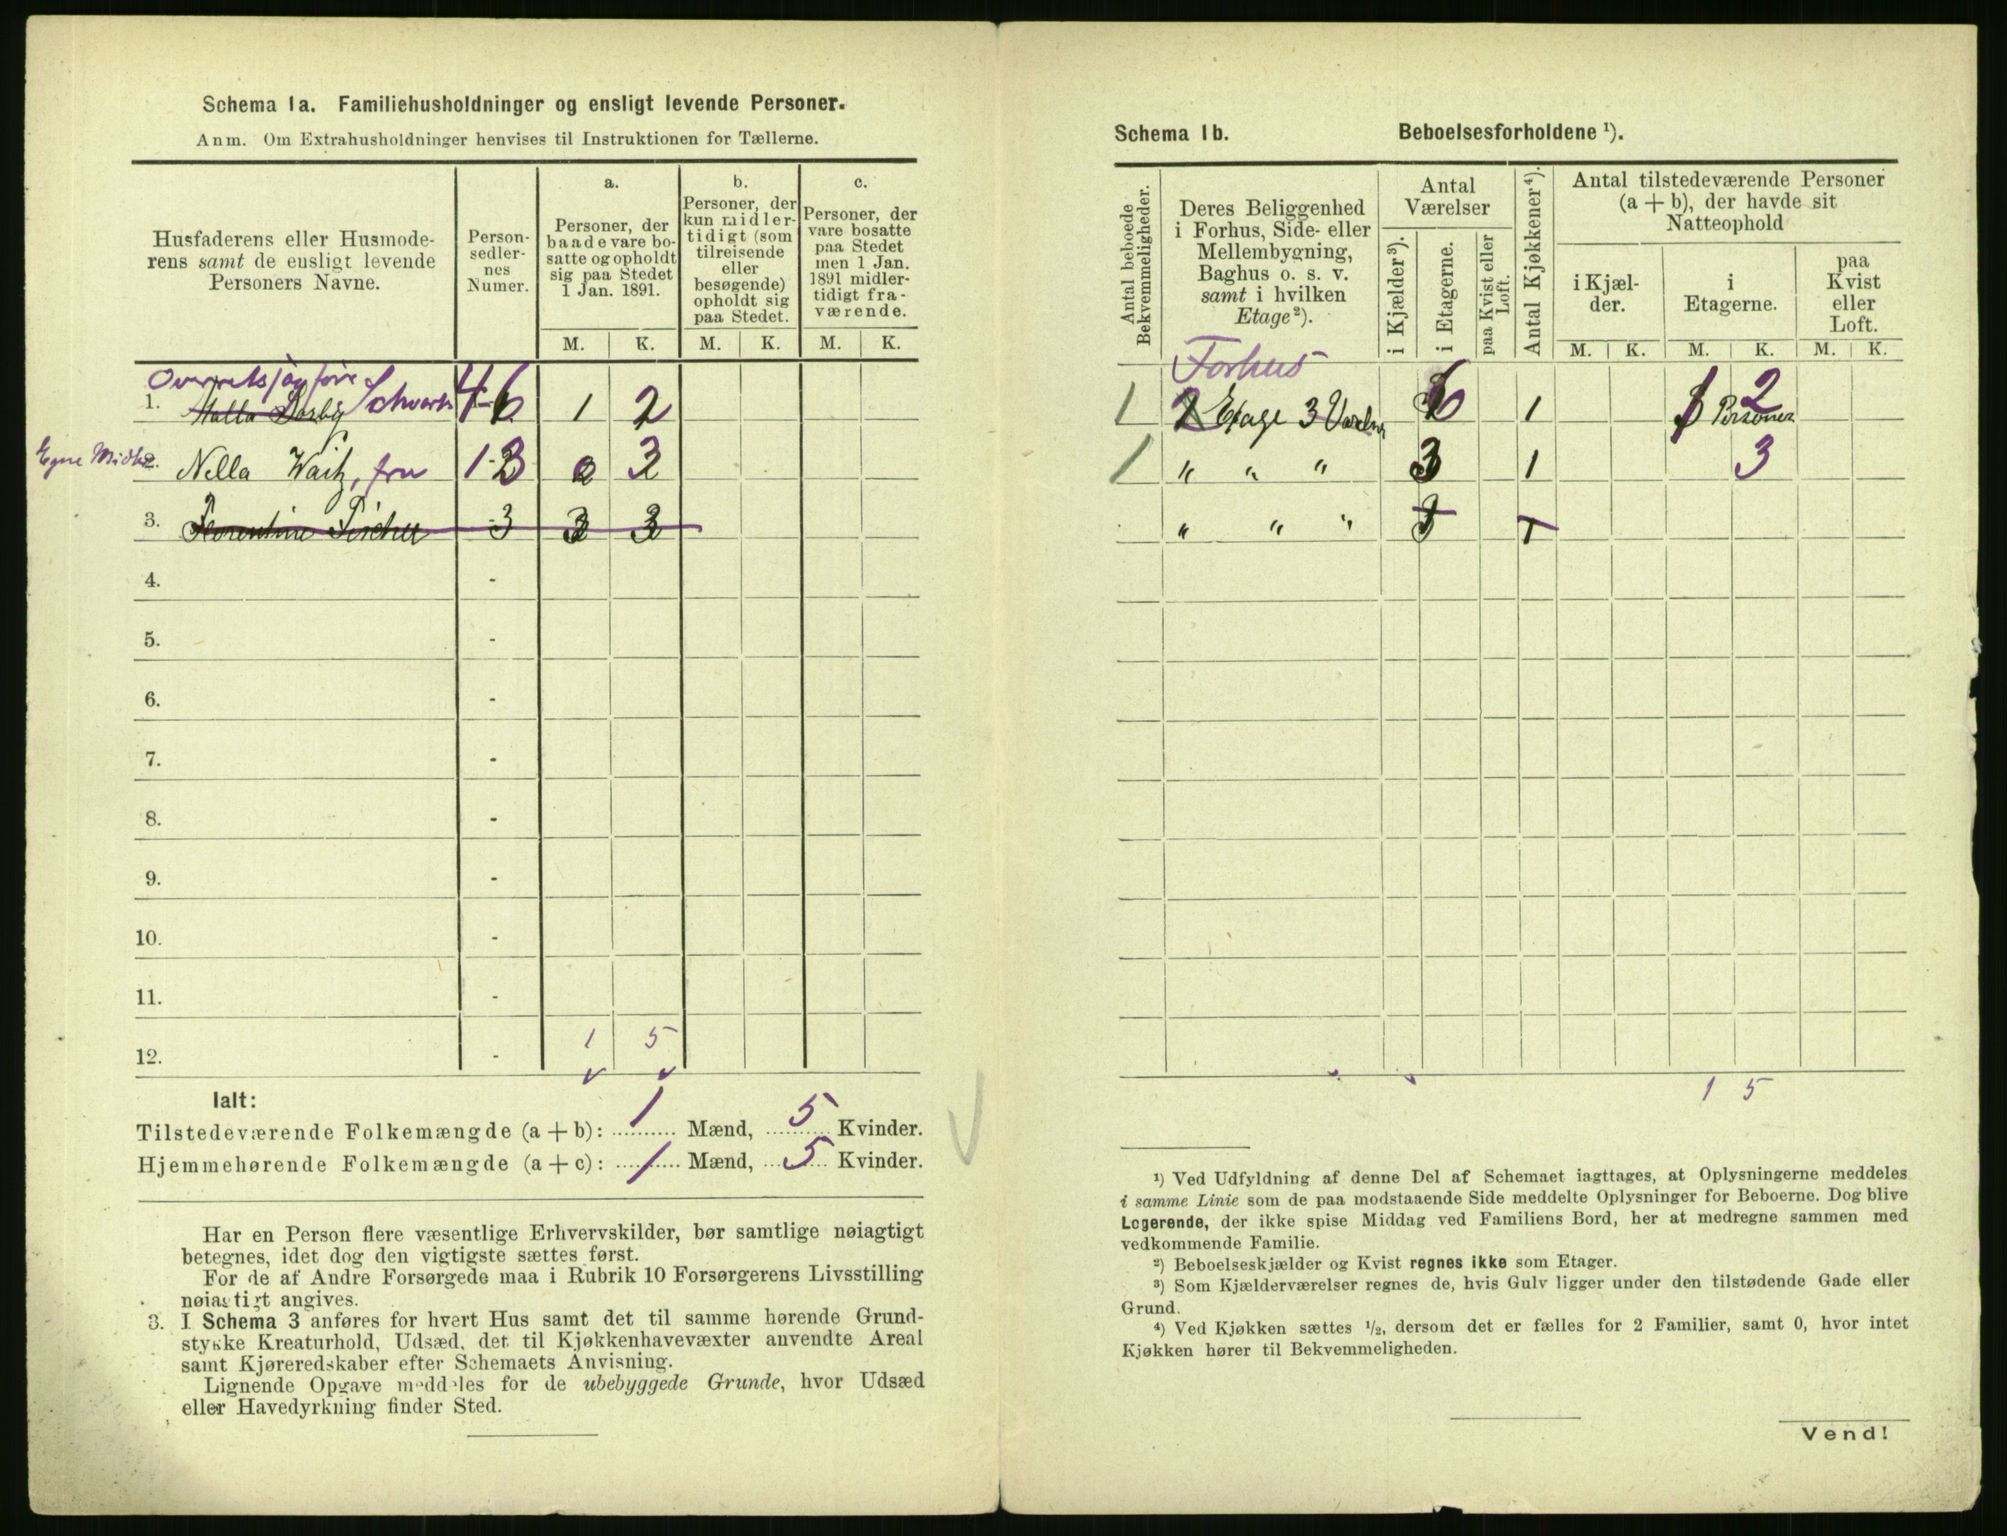 Schema 1 a. Familiehusholdninger og ensligt levende Personer.
Anm. Om Extrahusholdninger henvises til Instruktionen for Tællerne.
Husfaderens eller Husmode-
rens samt de ensligt levende
Personers Navne.
Person-
sedler-
nes
Numer.
a.
Personer, der
baade vare bo-
satte og opholdt
sig paa Stedet
1 Jan. 1891.
b.
Personer, der
kun midler-
tidigt (som
tilreisende
eller
besøgende)
opholdt sig
paa Stedet.
c.
Personer, der
vare bosatte
paa Stedet
men 1 Jan.
1891 midler-
tidigt fra-
værende.
M. K. M. K. M. K.
1. 4-6 1 2
Egne Midler 2. Nella Waitz, fru 1-3 0 3
3. Florentine Fischer - 3 3 3
4. -
5. -
6. -
7. -
8. -
9. -
10. -
11. -
12. - 1 5
Ialt:
Tilstedeværende Folkemængde (a + b): 1 Mænd, 5 Kvinder.
Hjemmehørende Folkemængde (a + c): 1 Mænd, 5 Kvinder.
Har en Person flere væsentlige Erhvervskilder, bør samtlige nøiagtigt
betegnes, idet dog den vigtigste sættes først.
For de af Andre Forsørgede maa i Rubrik 10 Forsørgerens Livsstilling
nøiagtigt angives.
3. I Schema 3 anføres for hvert Hus samt det til samme hørende Grund-
stykke Kreaturhold, Udsæd, det til Kjøkkenhavevæxter anvendte Areal
samt Kjøreredskaber efter Schemaets Anvisning.
Lignende Opgave meddeles for de ubebyggede Grunde, hvor Udsæd
eller Havedyrkning finder Sted.
Schema 1 b. Beboelsesforholdene ¹).
Antal beboede
Bekvemmeligheder.
Deres Beliggenhed
i Forhus, Side- eller
Mellembygning,
Baghus o. s. v.
samt i hvilken
Etage²).
Antal
Værelser
i Kjælder³).
i Etagerne.
paa Kvist eller
Loft.
Antal Kjøkkener⁴).
Antal tilstedeværende Personer
(a + b), der havde sit
Natteophold
i Kjæl-
der.
i
Etagerne.
paa
Kvist
eller
Loft.
M. K. M. K. M. K.
Forhus
1 2 Etage 3 6 1 1 2 Personer
1 " " " 3 1 3
" " "
1 5
¹) Ved Udfyldning af denne Del af Schemaet iagttages, at Oplysningerne meddeles
i samme Linie som de paa modstaaende Side meddelte Oplysninger for Beboerne. Dog blive
Logerende, der ikke spise Middag ved Familiens Bord, her at medregne sammen med
vedkommende Familie.
²) Beboelseskjælder og Kvist regnes ikke som Etager.
³) Som Kjælderværelser regnes de, hvis Gulv ligger under den tilstødende Gade eller
Grund.
⁴) Ved Kjøkken sættes ¹/₂, dersom det er fælles for 2 Familier, samt 0, hvor intet
Kjøkken hører til Bekvemmeligheden.
Vend!